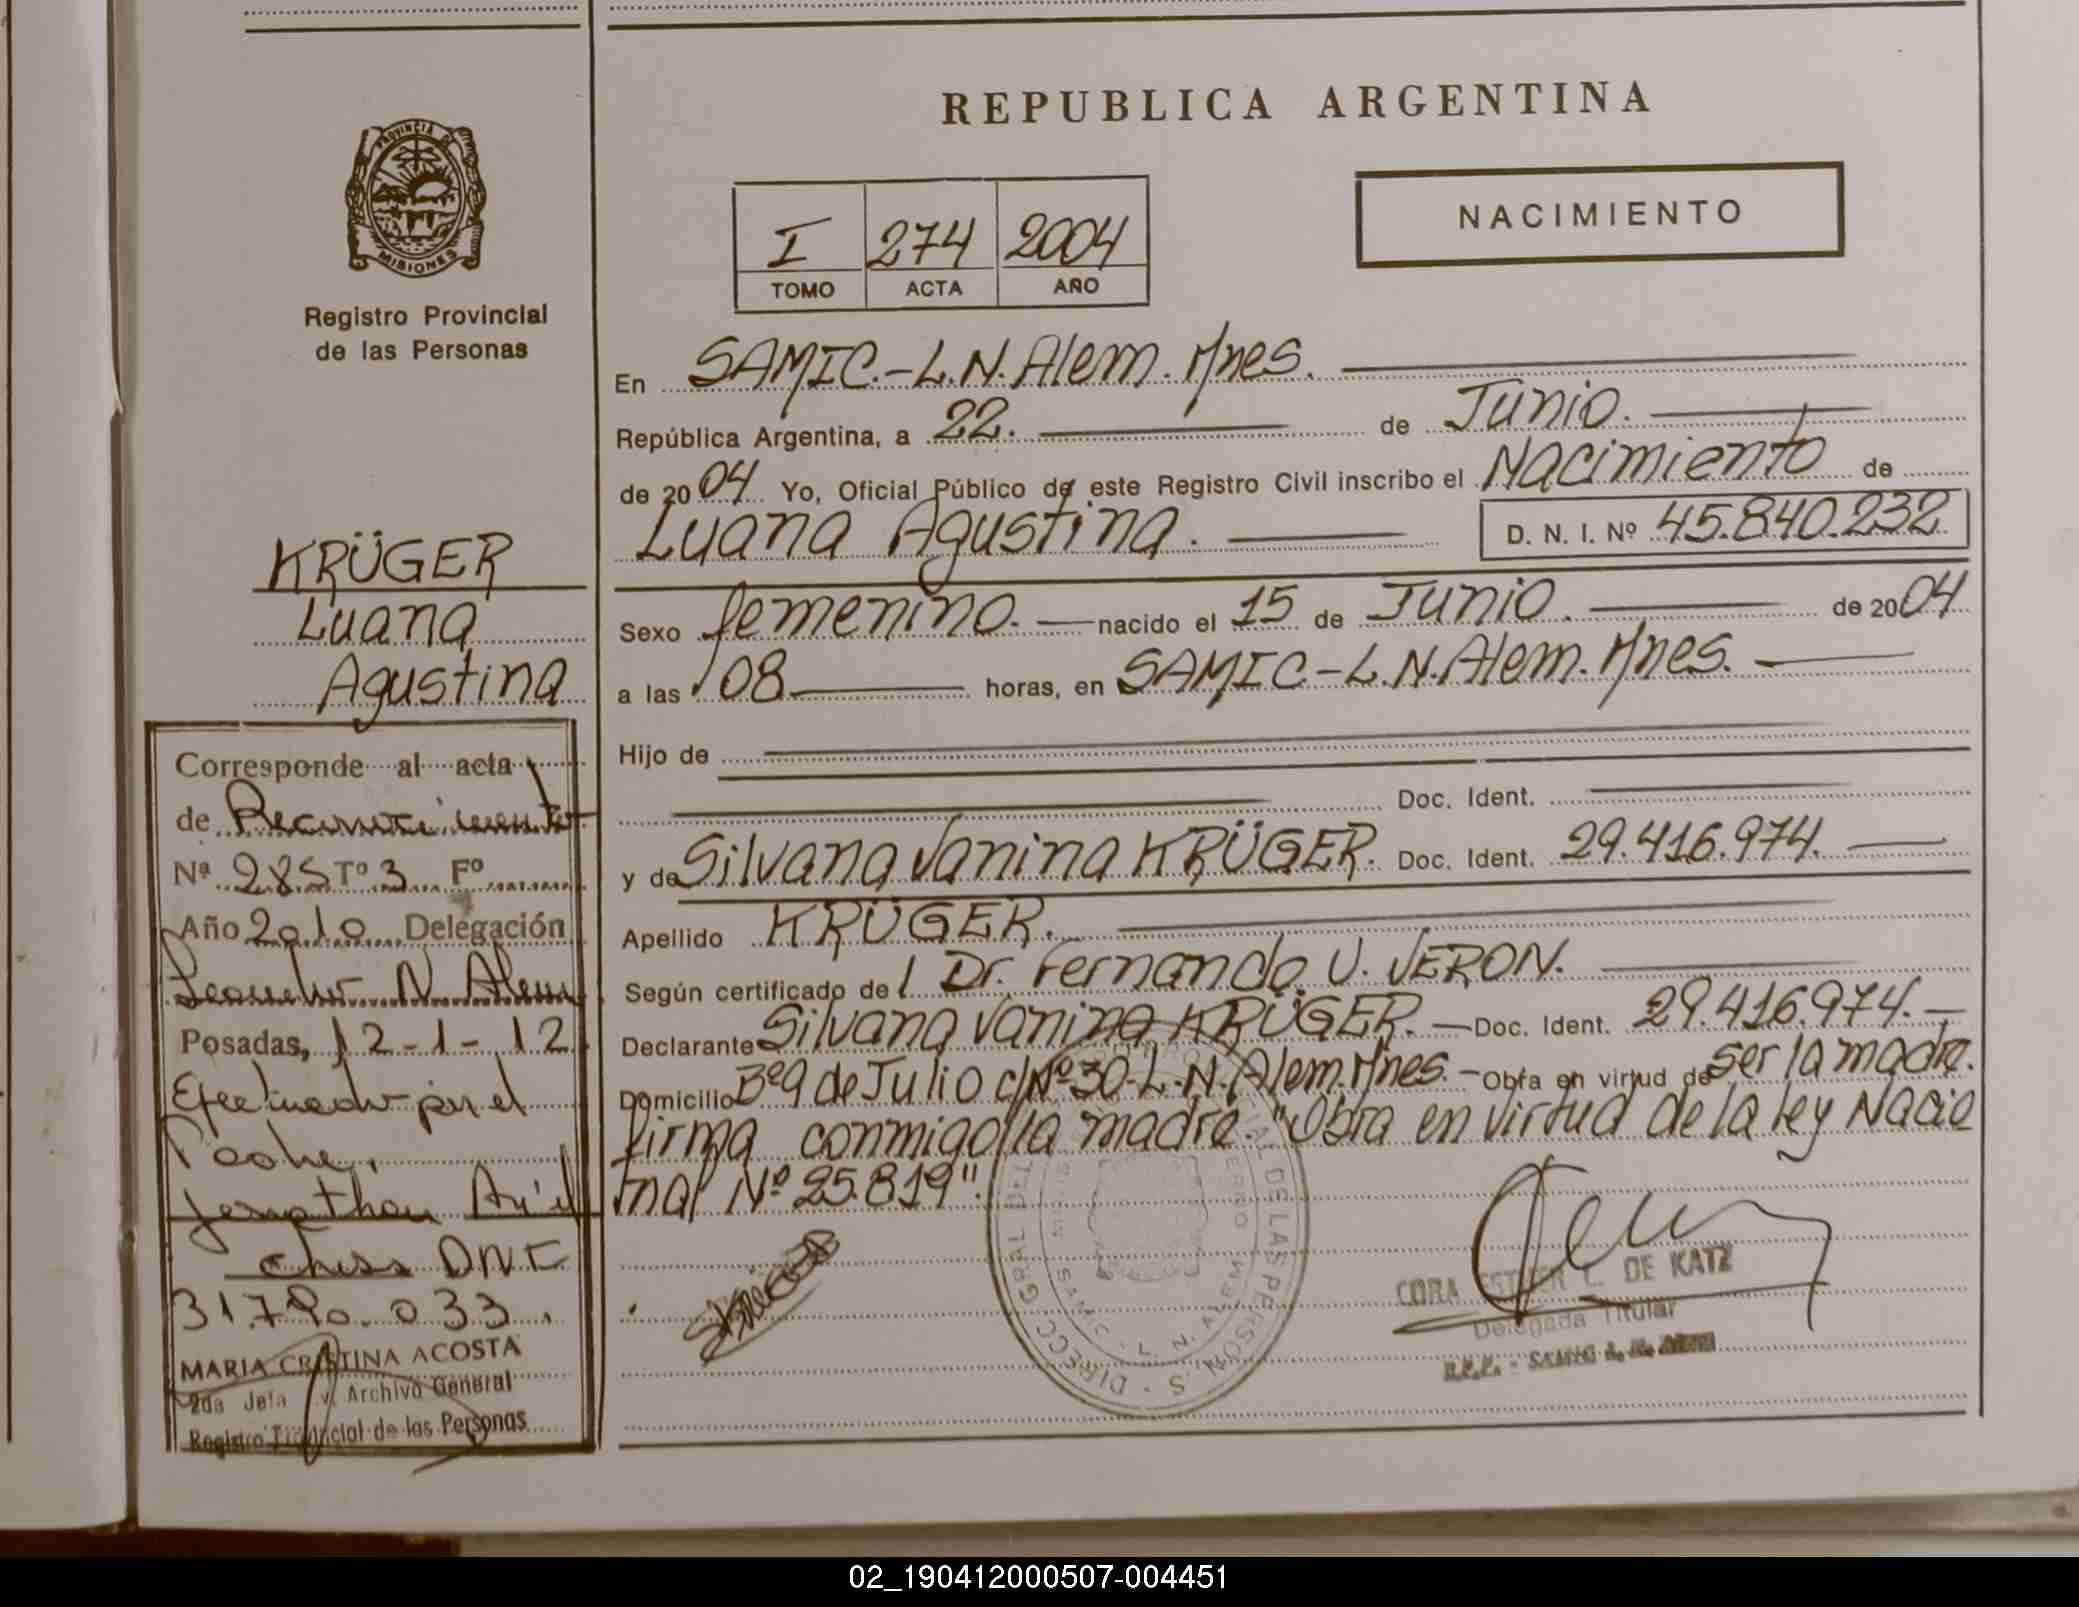 PROVINCIA DE
MISIONES
Registro Provincial
de las Personas
KRÜGER
Luana
Agustina
Corresponde al acta
de Reconocimiento
Nº 285 Tº 3 Fº
Año 2010 Delegación
Leandro N. Alem
Posadas, 12-1-12
Efectuado por el
Padre,
Jonathan Ariel
DNI
31.790.033.
MARIA CRISTINA ACOSTA
2da Jefa Archivo General
Registro Provincial de las Personas
REPUBLICA ARGENTINA
I 274 2004
TOMO ACTA AÑO
NACIMIENTO
En SAMIC.-L.N.Alem. Mnes.
República Argentina, a 22. de Junio.
de 2004 Yo, Oficial Público de este Registro Civil inscribo el Nacimiento de
Luana Agustina. D. N. I. Nº 45.840.232
Sexo femenino. nacido el 15 de Junio. de 2004
a las 08 horas, en SAMIC-L.N.Alem. Mnes.
Hijo de
Doc. Ident.
y de Silvana Vanina KRÜGER. Doc. Ident. 29.416.974.
Apellido KRÜGER.
Según certificado del Dr. Fernando U. VERON.
Declarante Silvana Vanina KRÜGER. Doc. Ident. 29.416.974.
Domicilio Bº9 de Julio c/Nº30-L.N.Alem.Mnes. Obra en virtud de ser la madre.
firma conmigo la madre. "Obra en virtud de la ley Nacio
nal Nº 25.819".
CORA ESTHER L. DE KATZ
Delegada Titular
R.P.P. - SAMIC L. N. ALEM
DIRECC. GRAL DEL DE LAS PERSON.S
L. N. ALEM
02_190412000507-004451